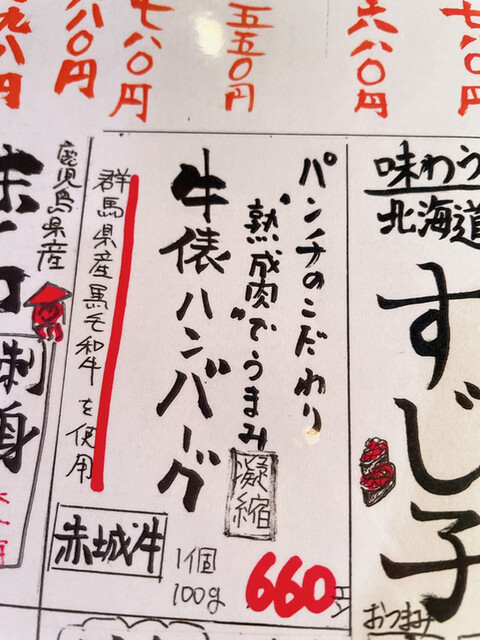 七八〇円
六八〇円
五五〇円
七八〇円
八〇円
九八円
味わう
北海道
すじ子
おつまみ
パンチのこだわり
"熟成肉"でうまみ
凝縮
牛俵ハンバーグ
群馬県産黒毛和牛を使用
赤城牛
1個
100g
660円
鹿児島県産
刺身